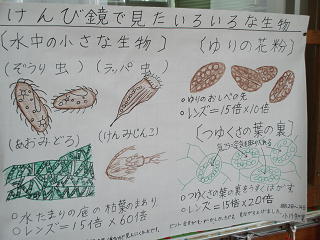 けんび鏡で見たいろいろな生物
〔水中の小さな生物〕
(ぞうり虫)
(ラッパ虫)
(あおみどろ)
(けんみじんこ)
○水たまりの底の枯葉のまわり
○レンズ=15倍×60倍
〔ゆりの花粉〕
○ゆりのおしべの先
○レンズ=15倍×10倍
〔つゆくさの葉の裏〕
○つゆくさの葉の裏をうすくはがす
○レンズ=15倍×20倍